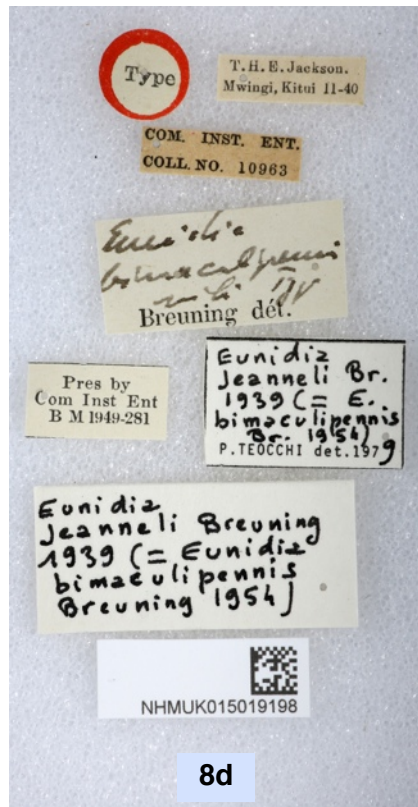 Type
T.H.E.Jackson.
Mwingi, Kitui 11-40
COM. INST. ENT.
COLL. NO. 10963
Eunidia
bimaculipennis
Breuning dét.
Pres by
Com Inst Ent
B M 1949-281
Eunidia
Jeanneli Br.
1939 (= E.
bimaculipennis
Br. 1954)
P.TEOCCHI det.1979
Eunidia
Jeanneli Breuning
1939 (= Eunidia
bimaculipennis
Breuning 1954)
NHMUK015019198
8d